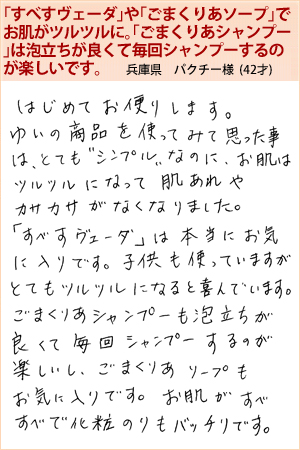 「すべすヴェーダ」や「ごまくりあソープ」で
お肌がツルツルに。「ごまくりあシャンプー
」は泡立ちが良くて毎回シャンプーするの
が楽しいです。 兵庫県 パクチー様 (42才)
はじめてお便りします。
ゆいの商品を使ってみて思った事
は、とても"シンプル"なのに、お肌は
ツルツルになって肌あれや
カサカサがなくなりました。
「すべすヴェーダ」は本当にお気
に入りです。子供も使っていますが
とてもツルツルになると喜んでいます。
ごまくりあシャンプーも泡立ちが
良くて毎回シャンプーするのが
楽しいし、ごまくりあソープも
お気に入りです。お肌がすべ
すべで化粧のりもバッチリです。